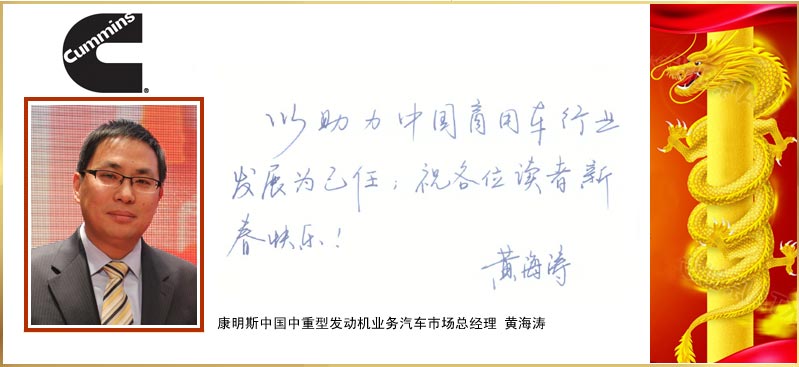 Cummins
以助力中国商用车行业
发展为己任；祝各位读者新
春快乐！
黄海涛
康明斯中国中重型发动机业务汽车市场总经理 黄海涛